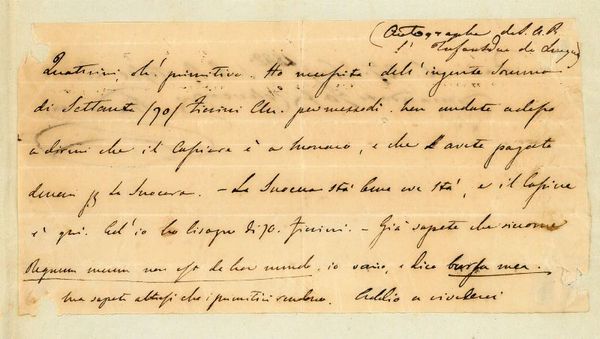 (Autographe de S. A. R.
l'Infant Duc de
Quatrini ed primitivo. Ho necessità dell'ingente somma
di Settanta /70/ Fiorini per mezzodì. non andate adesso
a dirmi che il Cassiere è a Monaco, e che l'avete pagate
la Suocera. – La Suocera stà bene ove stà, e il Cassiere
è qui. Ed io ho bisogno di 70. Fiorini. – Già sapete che siccome
Regnum meum non est de hoc mundo. io sono, e dico borsa mea.
ma sapete altresì che i primitivi rendono. Addio a rivederci